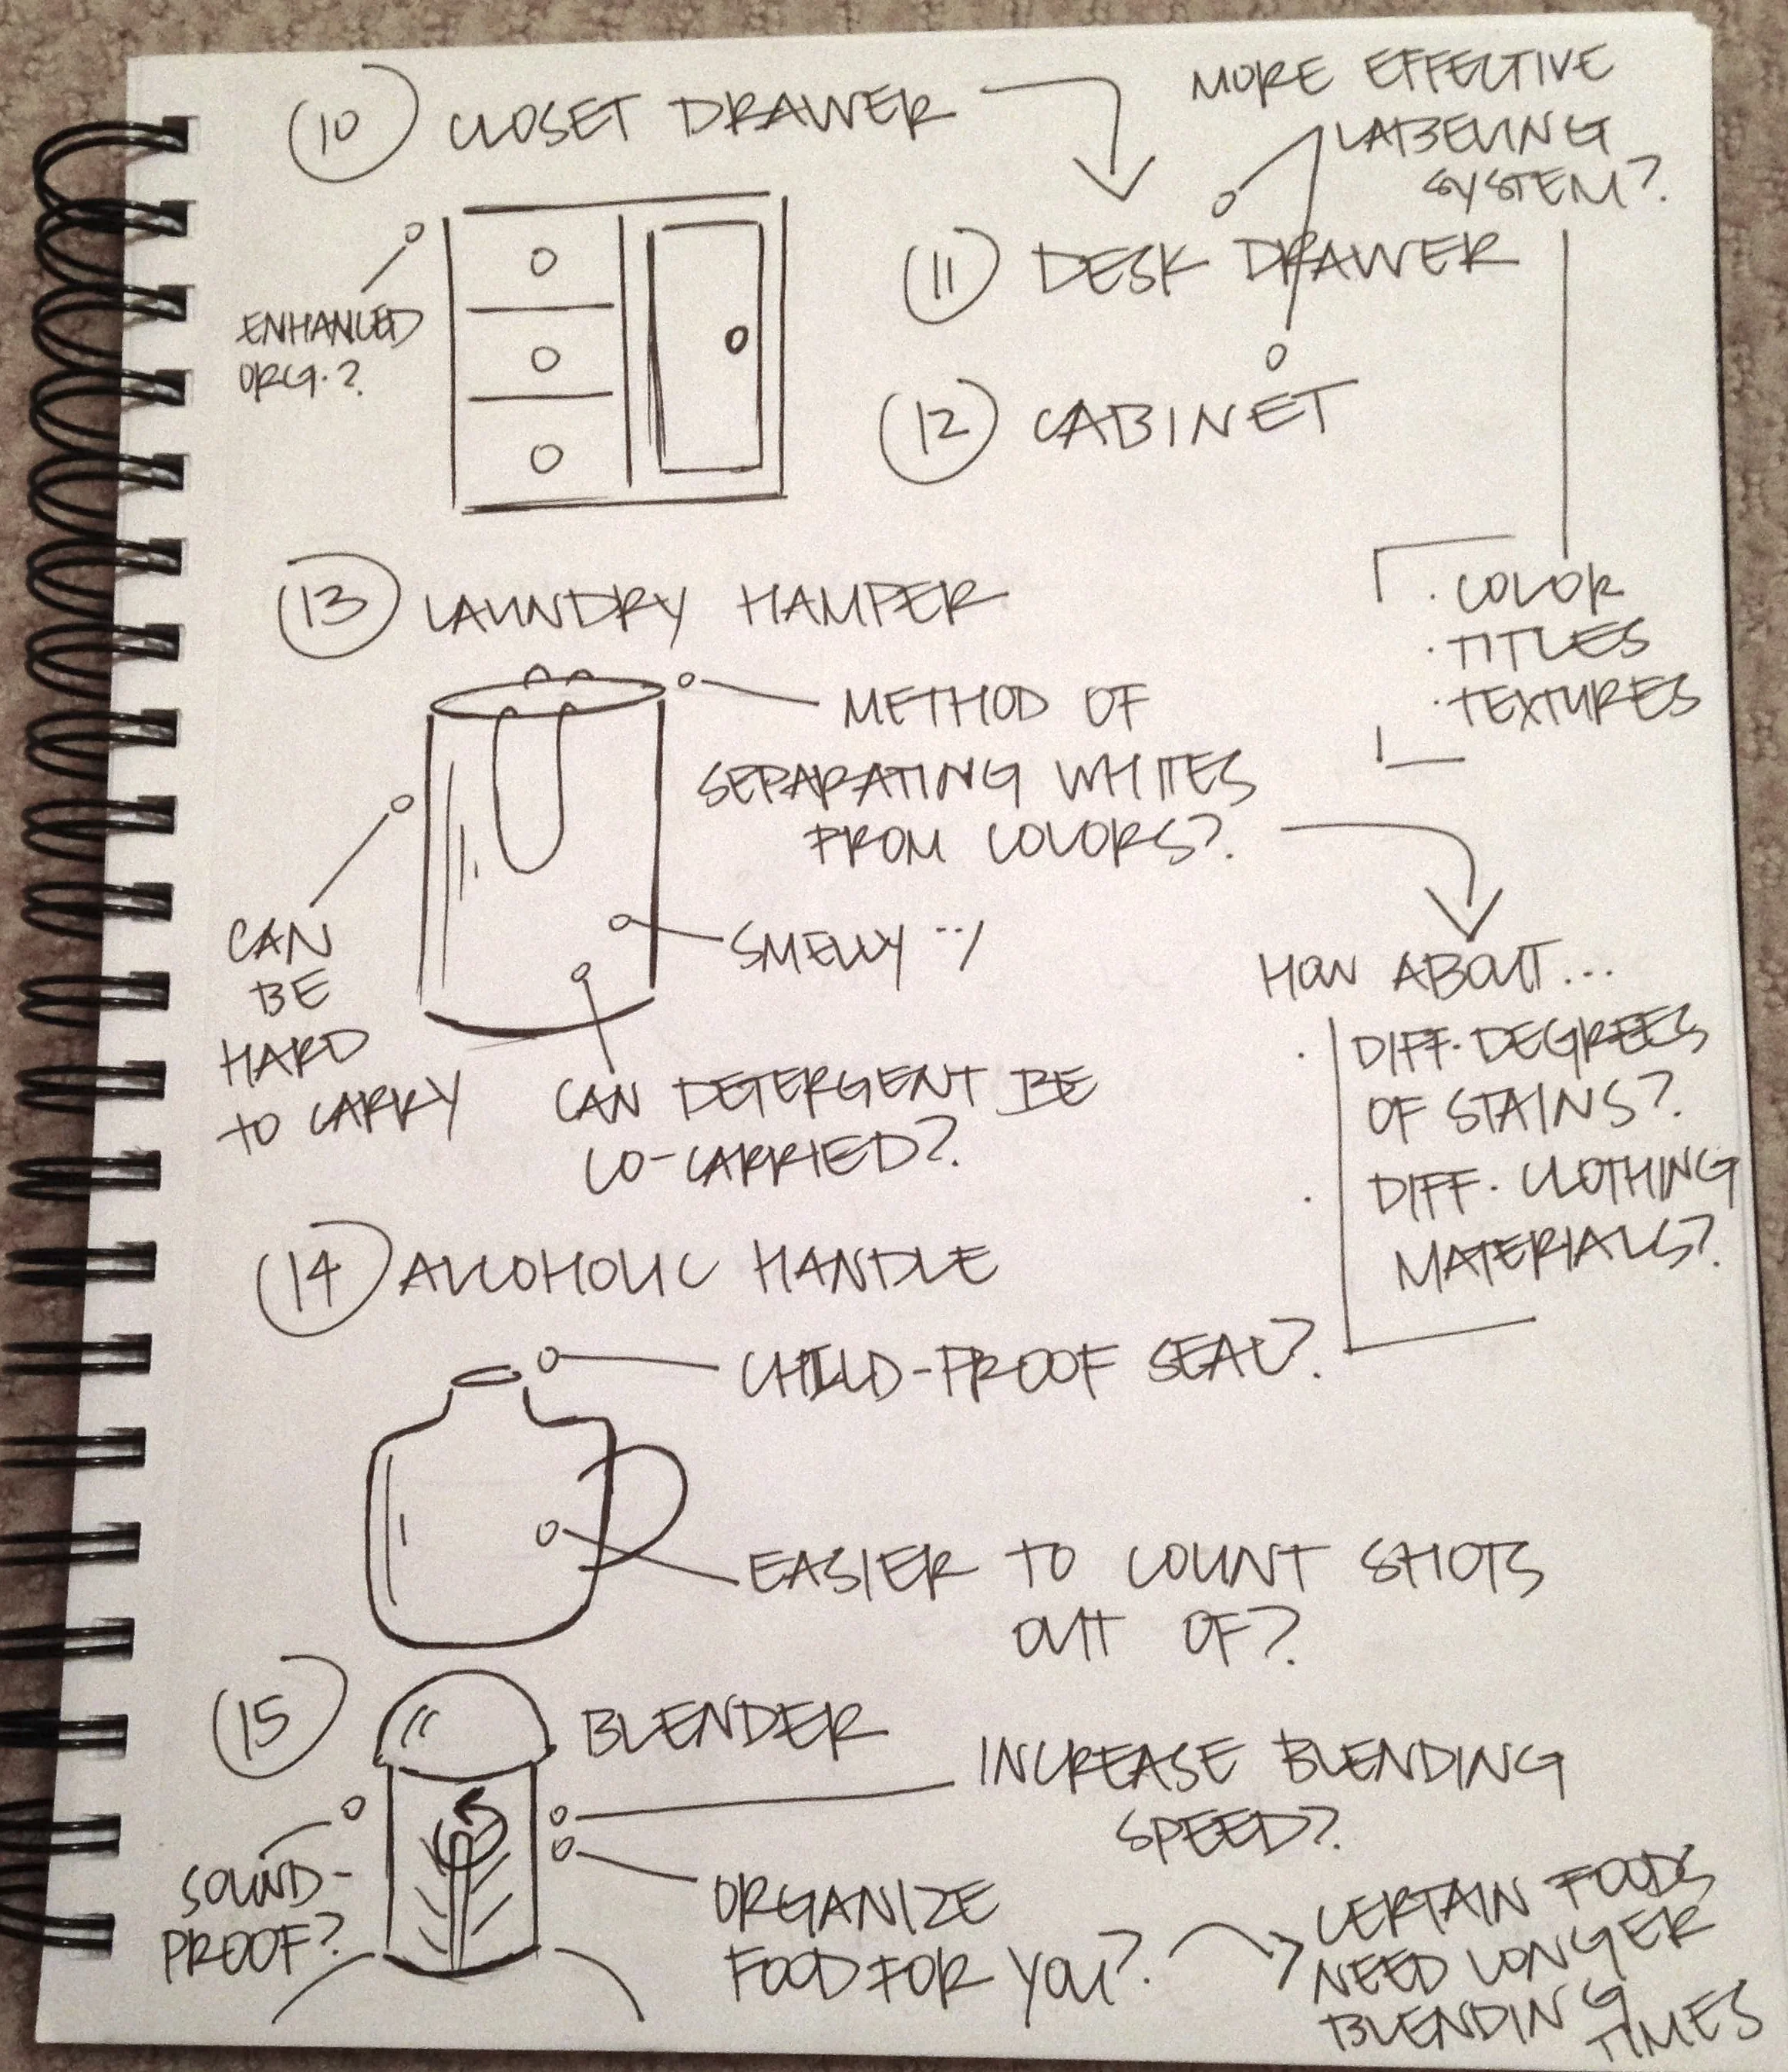 10 CLOSET DRAWER
MORE EFFECTIVE
LABELING
SYSTEM?
ENHANCED
ORG.?
11 DESK DRAWER
12 CABINET
· COLOR
· TITLES
· TEXTURES
13 LAUNDRY HAMPER
METHOD OF
SEPARATING WHITES
FROM COLORS?
SMELLY :/
CAN
BE
HARD
TO CARRY
CAN DETERGENT BE
CO-CARRIED?
HOW ABOUT...
· DIFF. DEGREES
OF STAINS?
· DIFF. CLOTHING
MATERIALS?
14 ALCOHOLIC HANDLE
CHILD-PROOF SEAL?
EASIER TO COUNT SHOTS
OUT OF?
15 BLENDER
INCREASE BLENDING
SPEED?
SOUND-
PROOF?
ORGANIZE
FOOD FOR YOU?
CERTAIN FOODS
NEED LONGER
BLENDING
TIMES